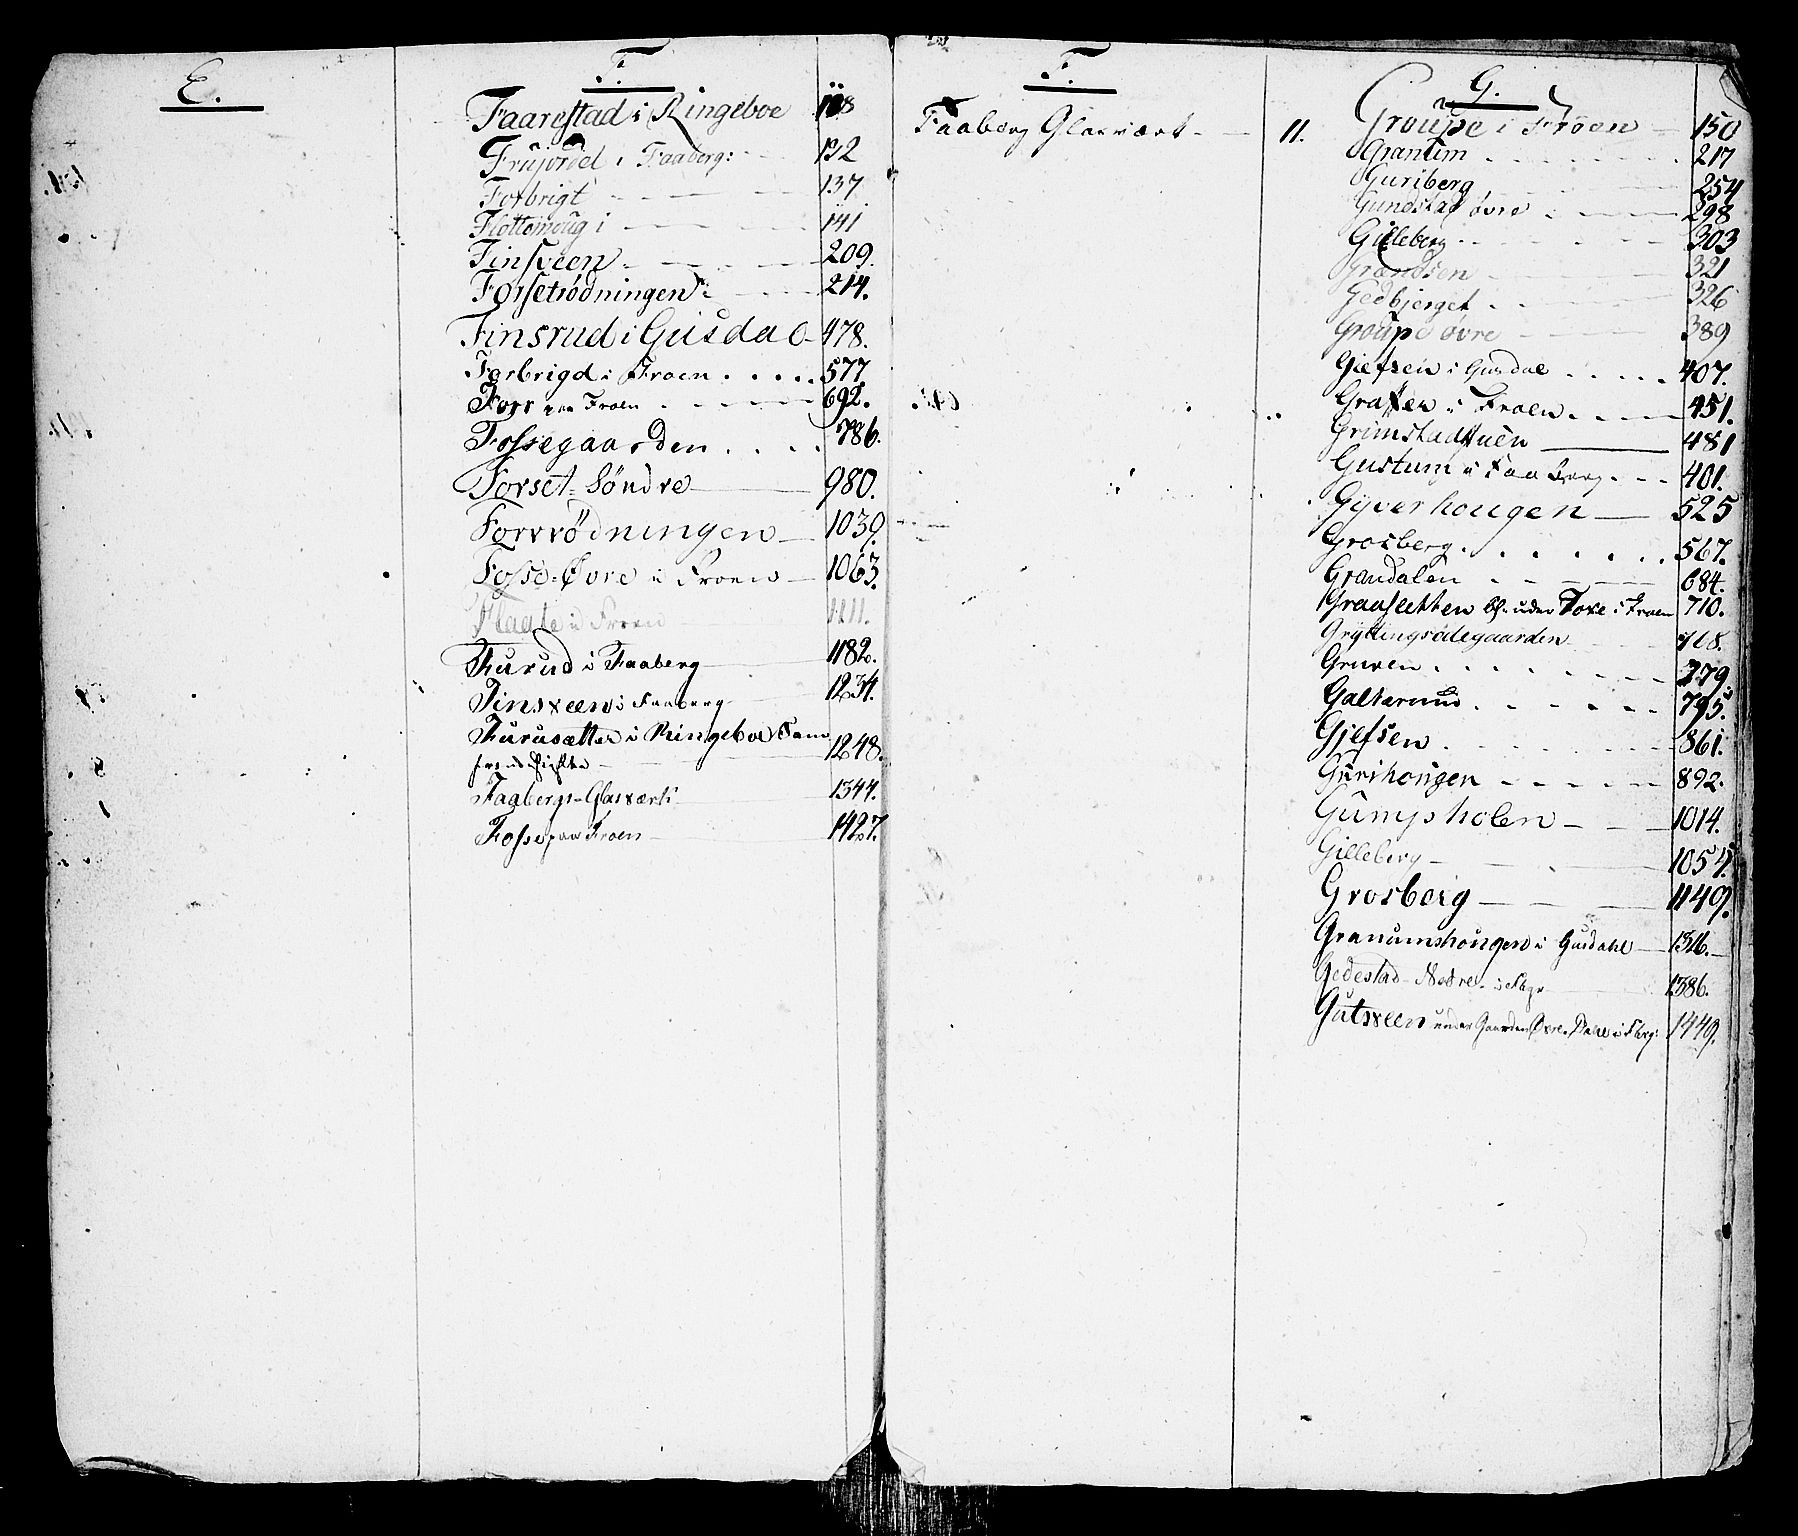 E.
F.
Faarestad i Ringeboe 118
Frujordet i Faaberg: 132
Forbrigt 137
Flottomoug i 141
Finsveen 209.
Forsetrødningen 214.
Finsrud i Gusdal 478.
Forbrigd i Froen 577
Foss paa Froen 692.
Fossegaarden 786.
Forset Søndre 980.
Forrrødningen 1039.
Fosse Øvre i Froen 1063.
Flaate i Froen 1111.
Furud i Faaberg 1182.
Finsveen i Faaberg 1234.
Furusætter i Ringeboe Sam
1248.
Faabergs-Glasværk 1344.
Fosse paa Froen 1427.
F.
Faaberg Glasværk 11.
G.
Groupe i Frøen 150
Granum 217
Guriberg 254
Gundstad øvre 298
Gilleberg 303
Grændsen 321
Gedbjerget 326
Groupe øvre 389
Gjefsen i Gusdal 407.
Graffer i Froen 451.
Grimstadstuen 481
Gustum i Faaberg 401.
Gyverhougen 525
Grosberg 567.
Grandalen 684.
Grausletten under Toxe i Froen 710.
Gryttingsødegaarden 768.
Gruven 779.
Galterud 795.
Gjefsen 861.
Gurihougen 892.
Gumpsholen 1014.
Gilleberg 1054.
Grosberg 1149.
Granumshougen i Gusdahl 1316.
Gedestad Nedre i Fbgr 1386.
Gutsveen under Gaarden Øvre i Fberg: 1449.